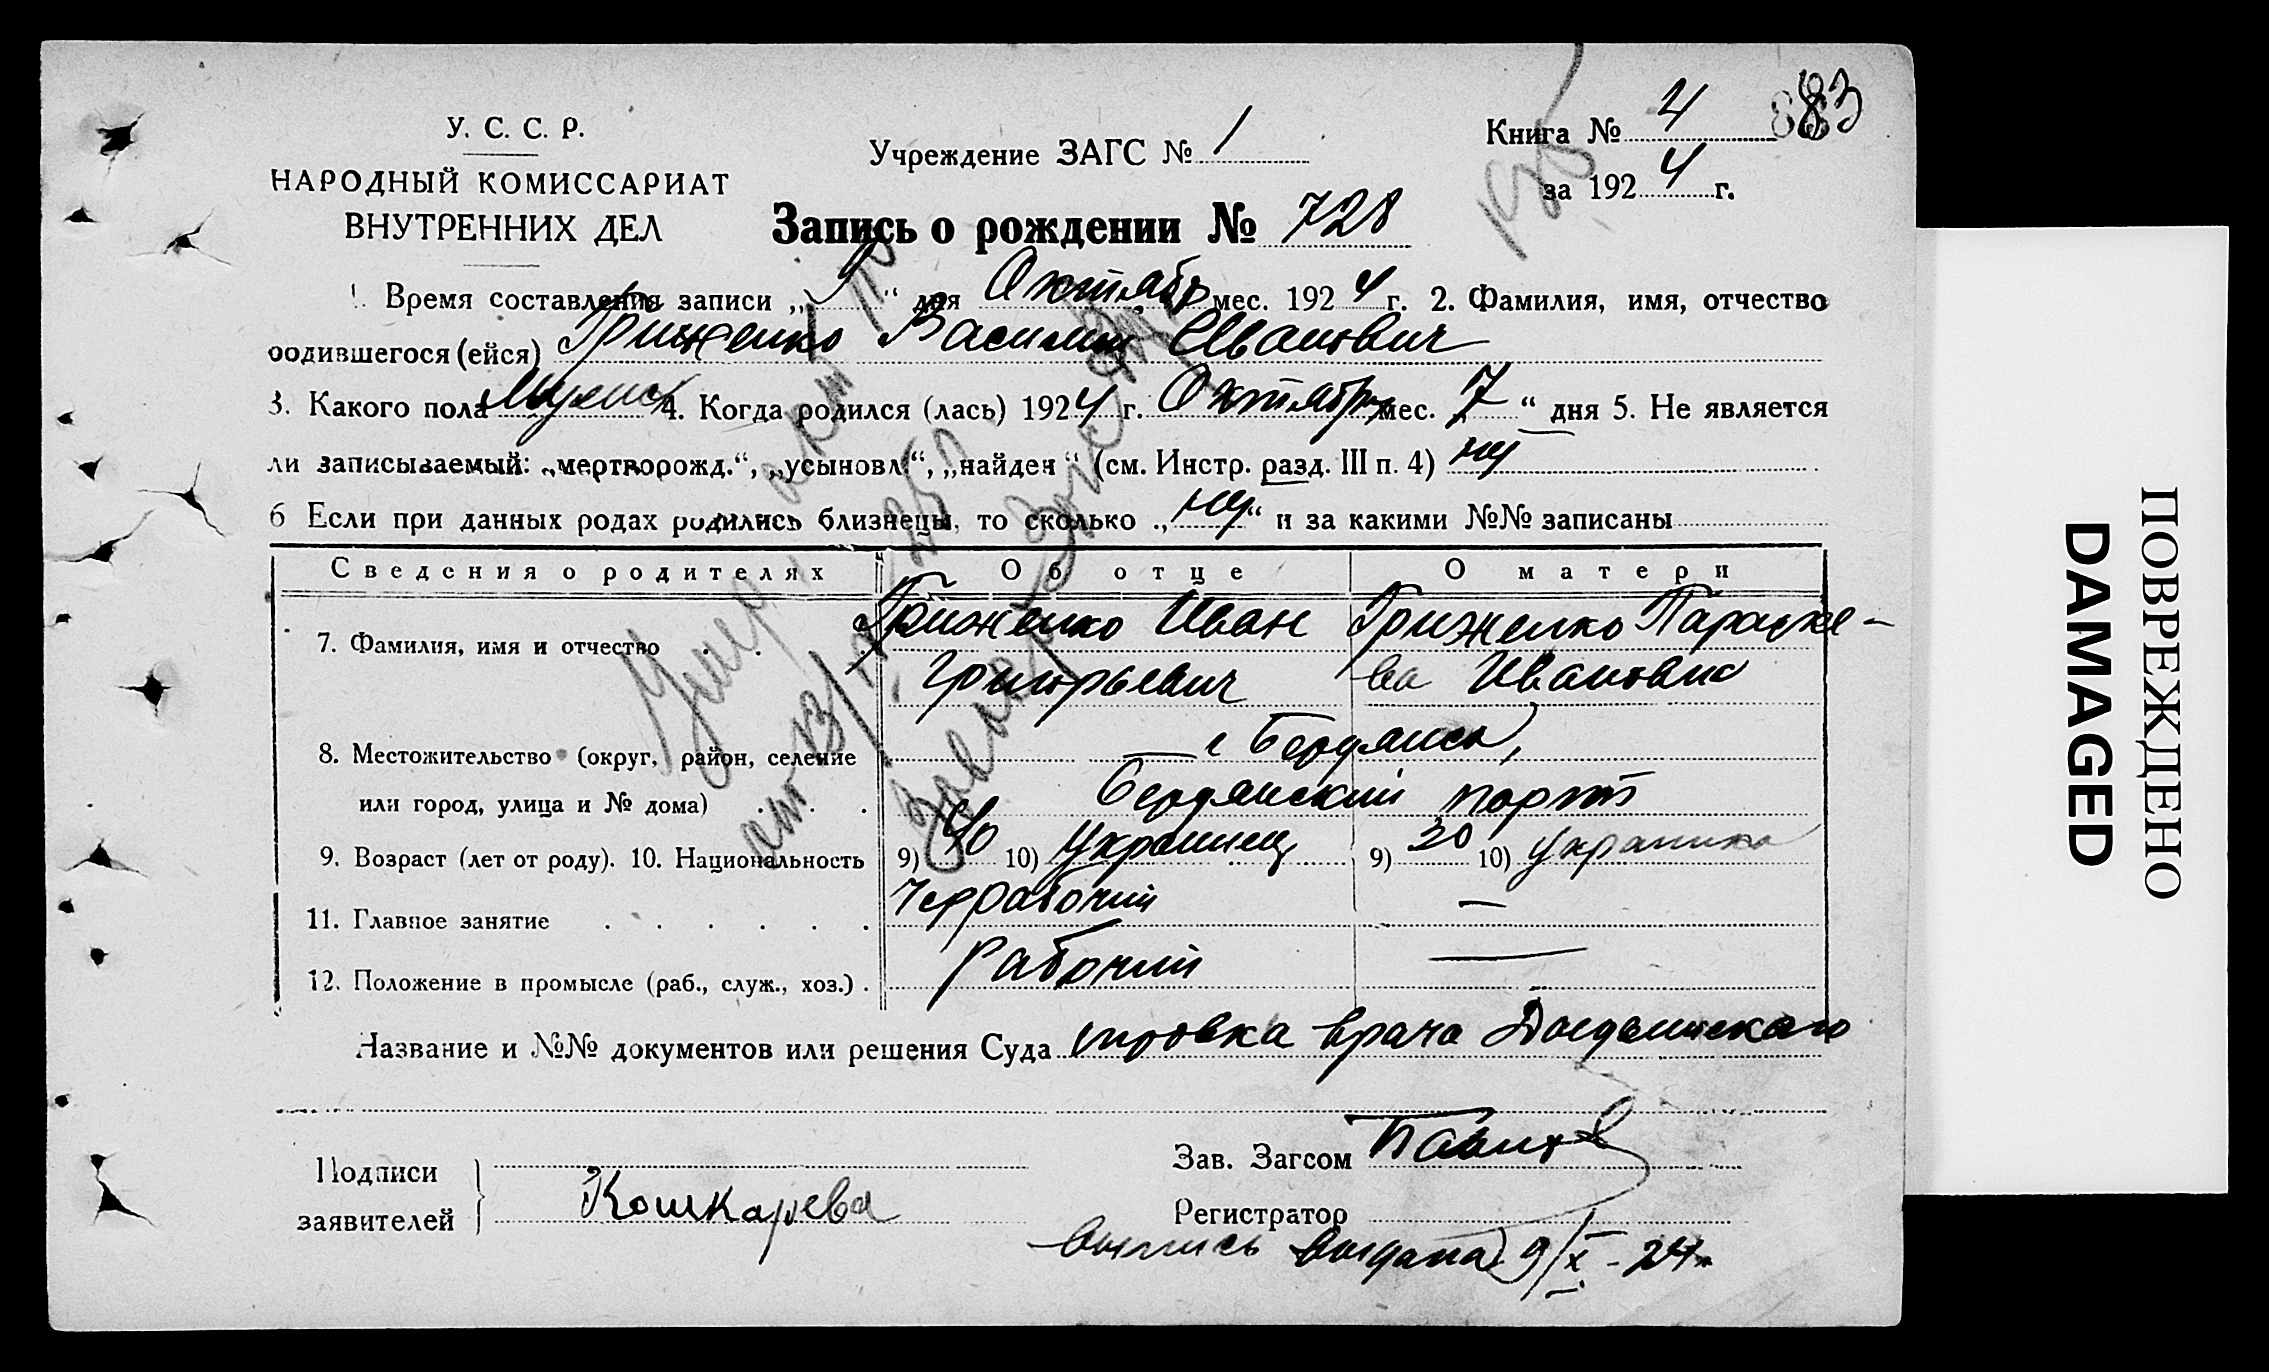 У. С. С. Р.
НАРОДНЫЙ КОМИССАРИАТ
ВНУТРЕННИХ ДЕЛ
Учреждение ЗАГС № 1
Книга № 4
за 1924 г.
883
Запись о рождении № 728
1. Время составления записи „9“ дня Октябр мес. 1924 г. 2. Фамилия, имя, отчество
родившегося (ейся) Гриженко Василий Иванович
3. Какого пола Мужск 4. Когда родился (лась) 1924 г. Октябр мес. „7“ дня 5. Не является
ли записываемый: „мертворожд.“, „усыновл.“, „найден“ (см. Инстр. разд. III п. 4) нет
6 Если при данных родах родились близнецы, то сколько „нет“ и за какими №№ записаны
Сведения о родителях Об отце О матери
7. Фамилия, имя и отчество Гриженко Иван Гриженко Параске-
Григорьевич ва Ивановна
8. Местожительство (округ, район, селение г Бердянск,
или город, улица и № дома) Бердянский порт
9. Возраст (лет от роду). 10. Национальность 9) 40 10) Украинец 9) 30 10) украинка
11. Главное занятие Чернорабочий —
12. Положение в промысле (раб., служ., хоз.) Рабочий —
Название и №№ документов или решения Суда справка врача
Подписи
заявителей Кошкарева
Зав. Загсом
Регистратор
выпись выдана 9/X - 24 г
Умер акт №
ПОВРЕЖДЕНО
DAMAGED